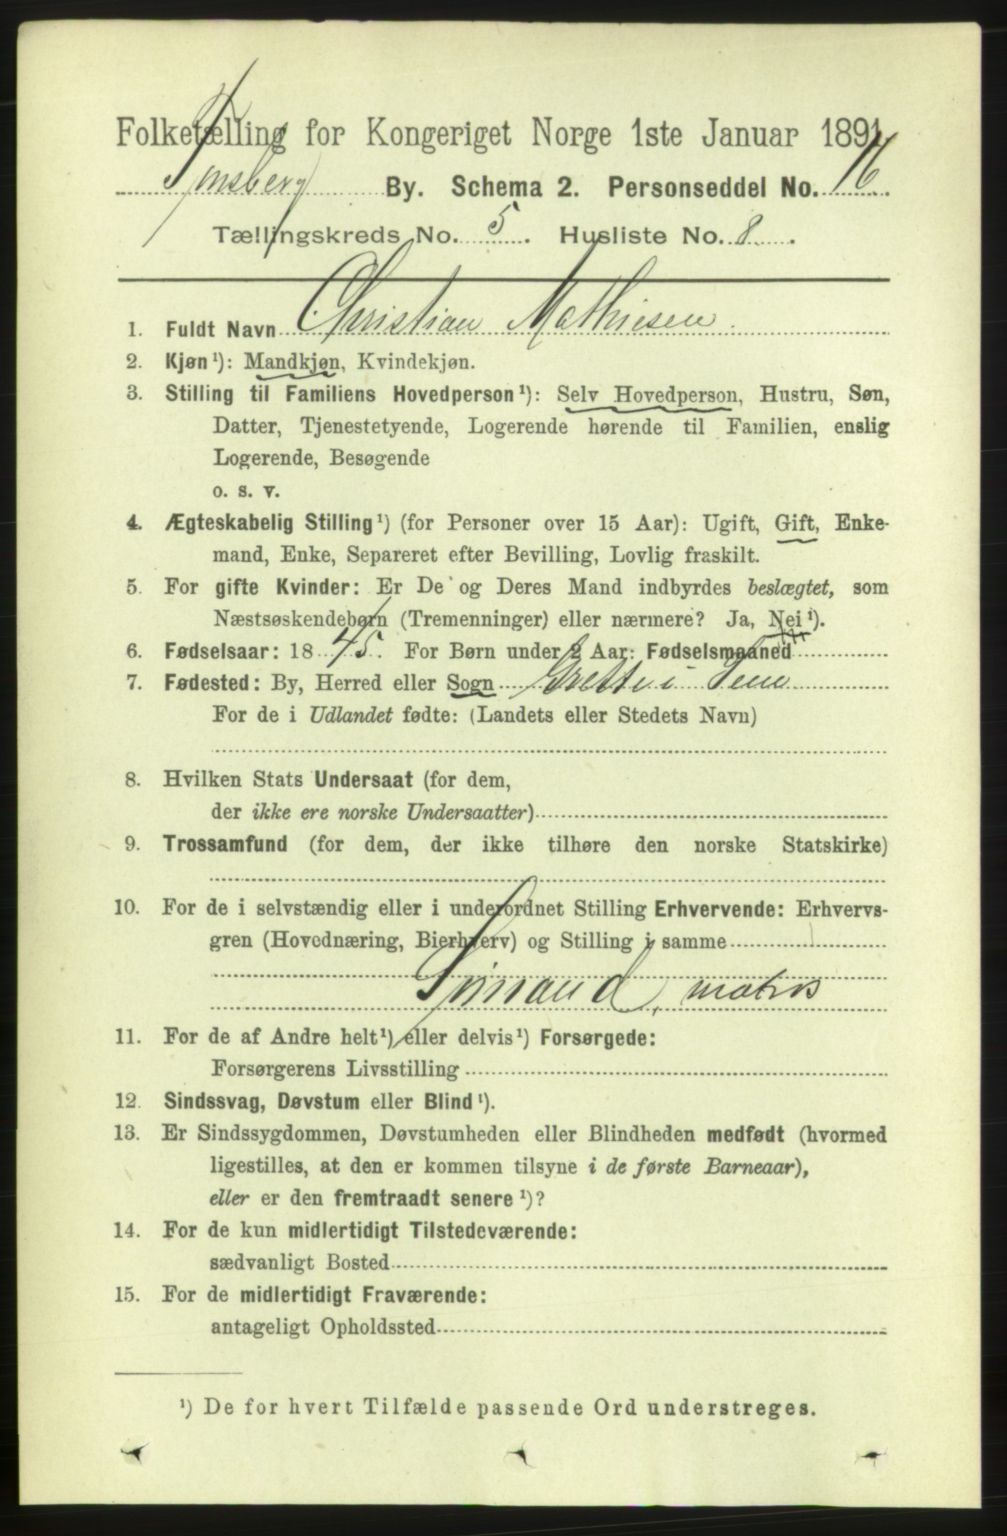 Folketælling for Kongeriget Norge 1ste Januar 1891.
Tønsberg By. Schema 2. Personseddel No. 16.
Tællingskreds No. 5. Husliste No. 8.
1. Fuldt Navn Christian Mathiesen.
2. Kjøn ¹): Mandkjøn, Kvindekjøn.
3. Stilling til Familiens Hovedperson ¹): Selv Hovedperson, Hustru, Søn,
Datter, Tjenestetyende, Logerende hørende til Familien, enslig
Logerende, Besøgende
o. s. v.
4. Ægteskabelig Stilling ¹) (for Personer over 15 Aar): Ugift, Gift, Enke-
mand, Enke, Separeret efter Bevilling, Lovlig fraskilt.
5. For gifte Kvinder: Er De og Deres Mand indbyrdes beslægtet, som
Næstsøskendebørn (Tremenninger) eller nærmere? Ja, Nei ¹).
6. Fødselsaar: 1845. For Børn under 2 Aar: Fødselsmaaned
7. Fødested: By, Herred eller Sogn i Sem
For de i Udlandet fødte: (Landets eller Stedets Navn)
8. Hvilken Stats Undersaat (for dem,
der ikke ere norske Undersaatter)
9. Trossamfund (for dem, der ikke tilhøre den norske Statskirke)
10. For de i selvstændig eller i underordnet Stilling Erhvervende: Erhvervs-
gren (Hovednæring, Bierhverv) og Stilling i samme
Sømand, matros
11. For de af Andre helt ¹) eller delvis ¹) Forsørgede:
Forsørgerens Livsstilling
12. Sindssvag, Døvstum eller Blind ¹).
13. Er Sindssygdommen, Døvstumheden eller Blindheden medfødt (hvormed
ligestilles, at den er kommen tilsyne i de første Barneaar),
eller er den fremtraadt senere ¹)?
14. For de kun midlertidigt Tilstedeværende:
sædvanligt Bosted
15. For de midlertidigt Fraværende:
antageligt Opholdssted
¹) De for hvert Tilfælde passende Ord understreges.